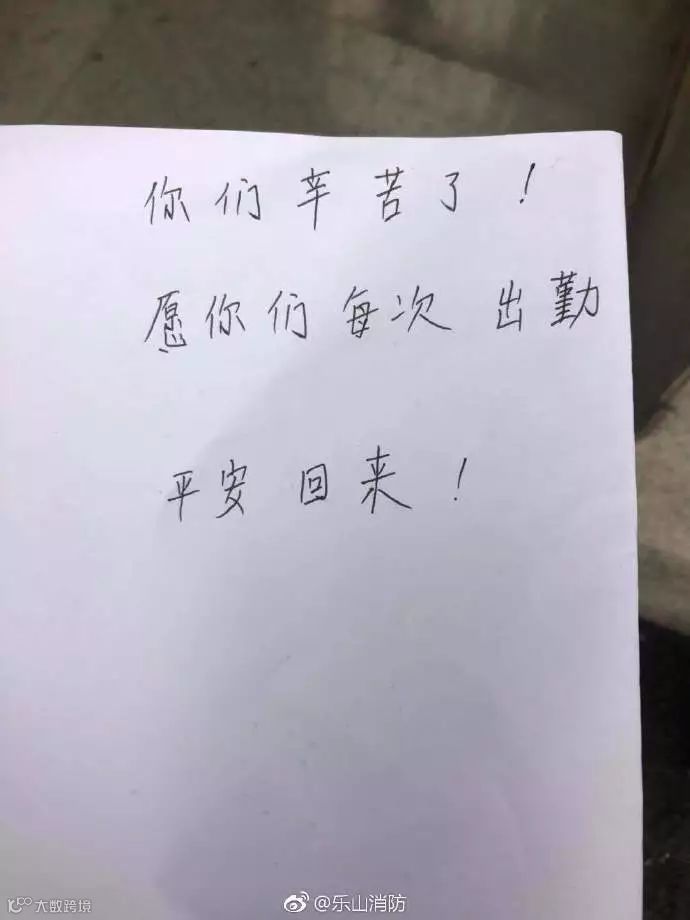 你们辛苦了！
愿你们每次出勤
平安回来！
@乐山消防
大数跨境